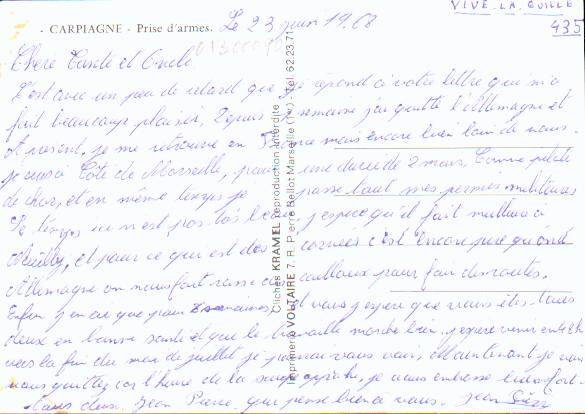 VIVE-LA-QUILLE
435
- CARPIAGNE - Prise d'armes.
Le 23 juin 1968
01300090
Chère Tante et Oncle
C'est avec un peu de retard que je répond à votre lettre qui m'a
fait beaucoup plaisir, Depuis semaine j'ai quitté l'Allemagne et
présent, je me retrouve en France mais encore bien loin de vous.
je suis a Côté de Marseille, pour une durée de 2 mois, Comme pilote
de char, et en même temps je passe tout mes permis militaires
Le temps ici n'est pas très beau, j'espère qu'il fait meilleur à
Neuilly, et pour ce qui est des corvées c'est encore pire qu'en
Allemagne on nous fait casser cailloux pour fair des routes.
Enfin j'en ai que pour semaines, et vous j'espère que vous êtes tous
deux en bonne santé et que le travaille marche bien. j'espère venir en
vers la fin du mois de juillet je pourrai vous voir, Maintenant je vais
vous quittez car l'heure de la soupe approche, je vous embrasse bien fort
tous deux. Jean Pierre, qui pense bien a vous. Jean Pierre
Clichés KRAMEL reproduction interdite
Imprimerie VOLTAIRE 7, R. Pierre Bellot Marseille (1er) Tél. 62.23.71